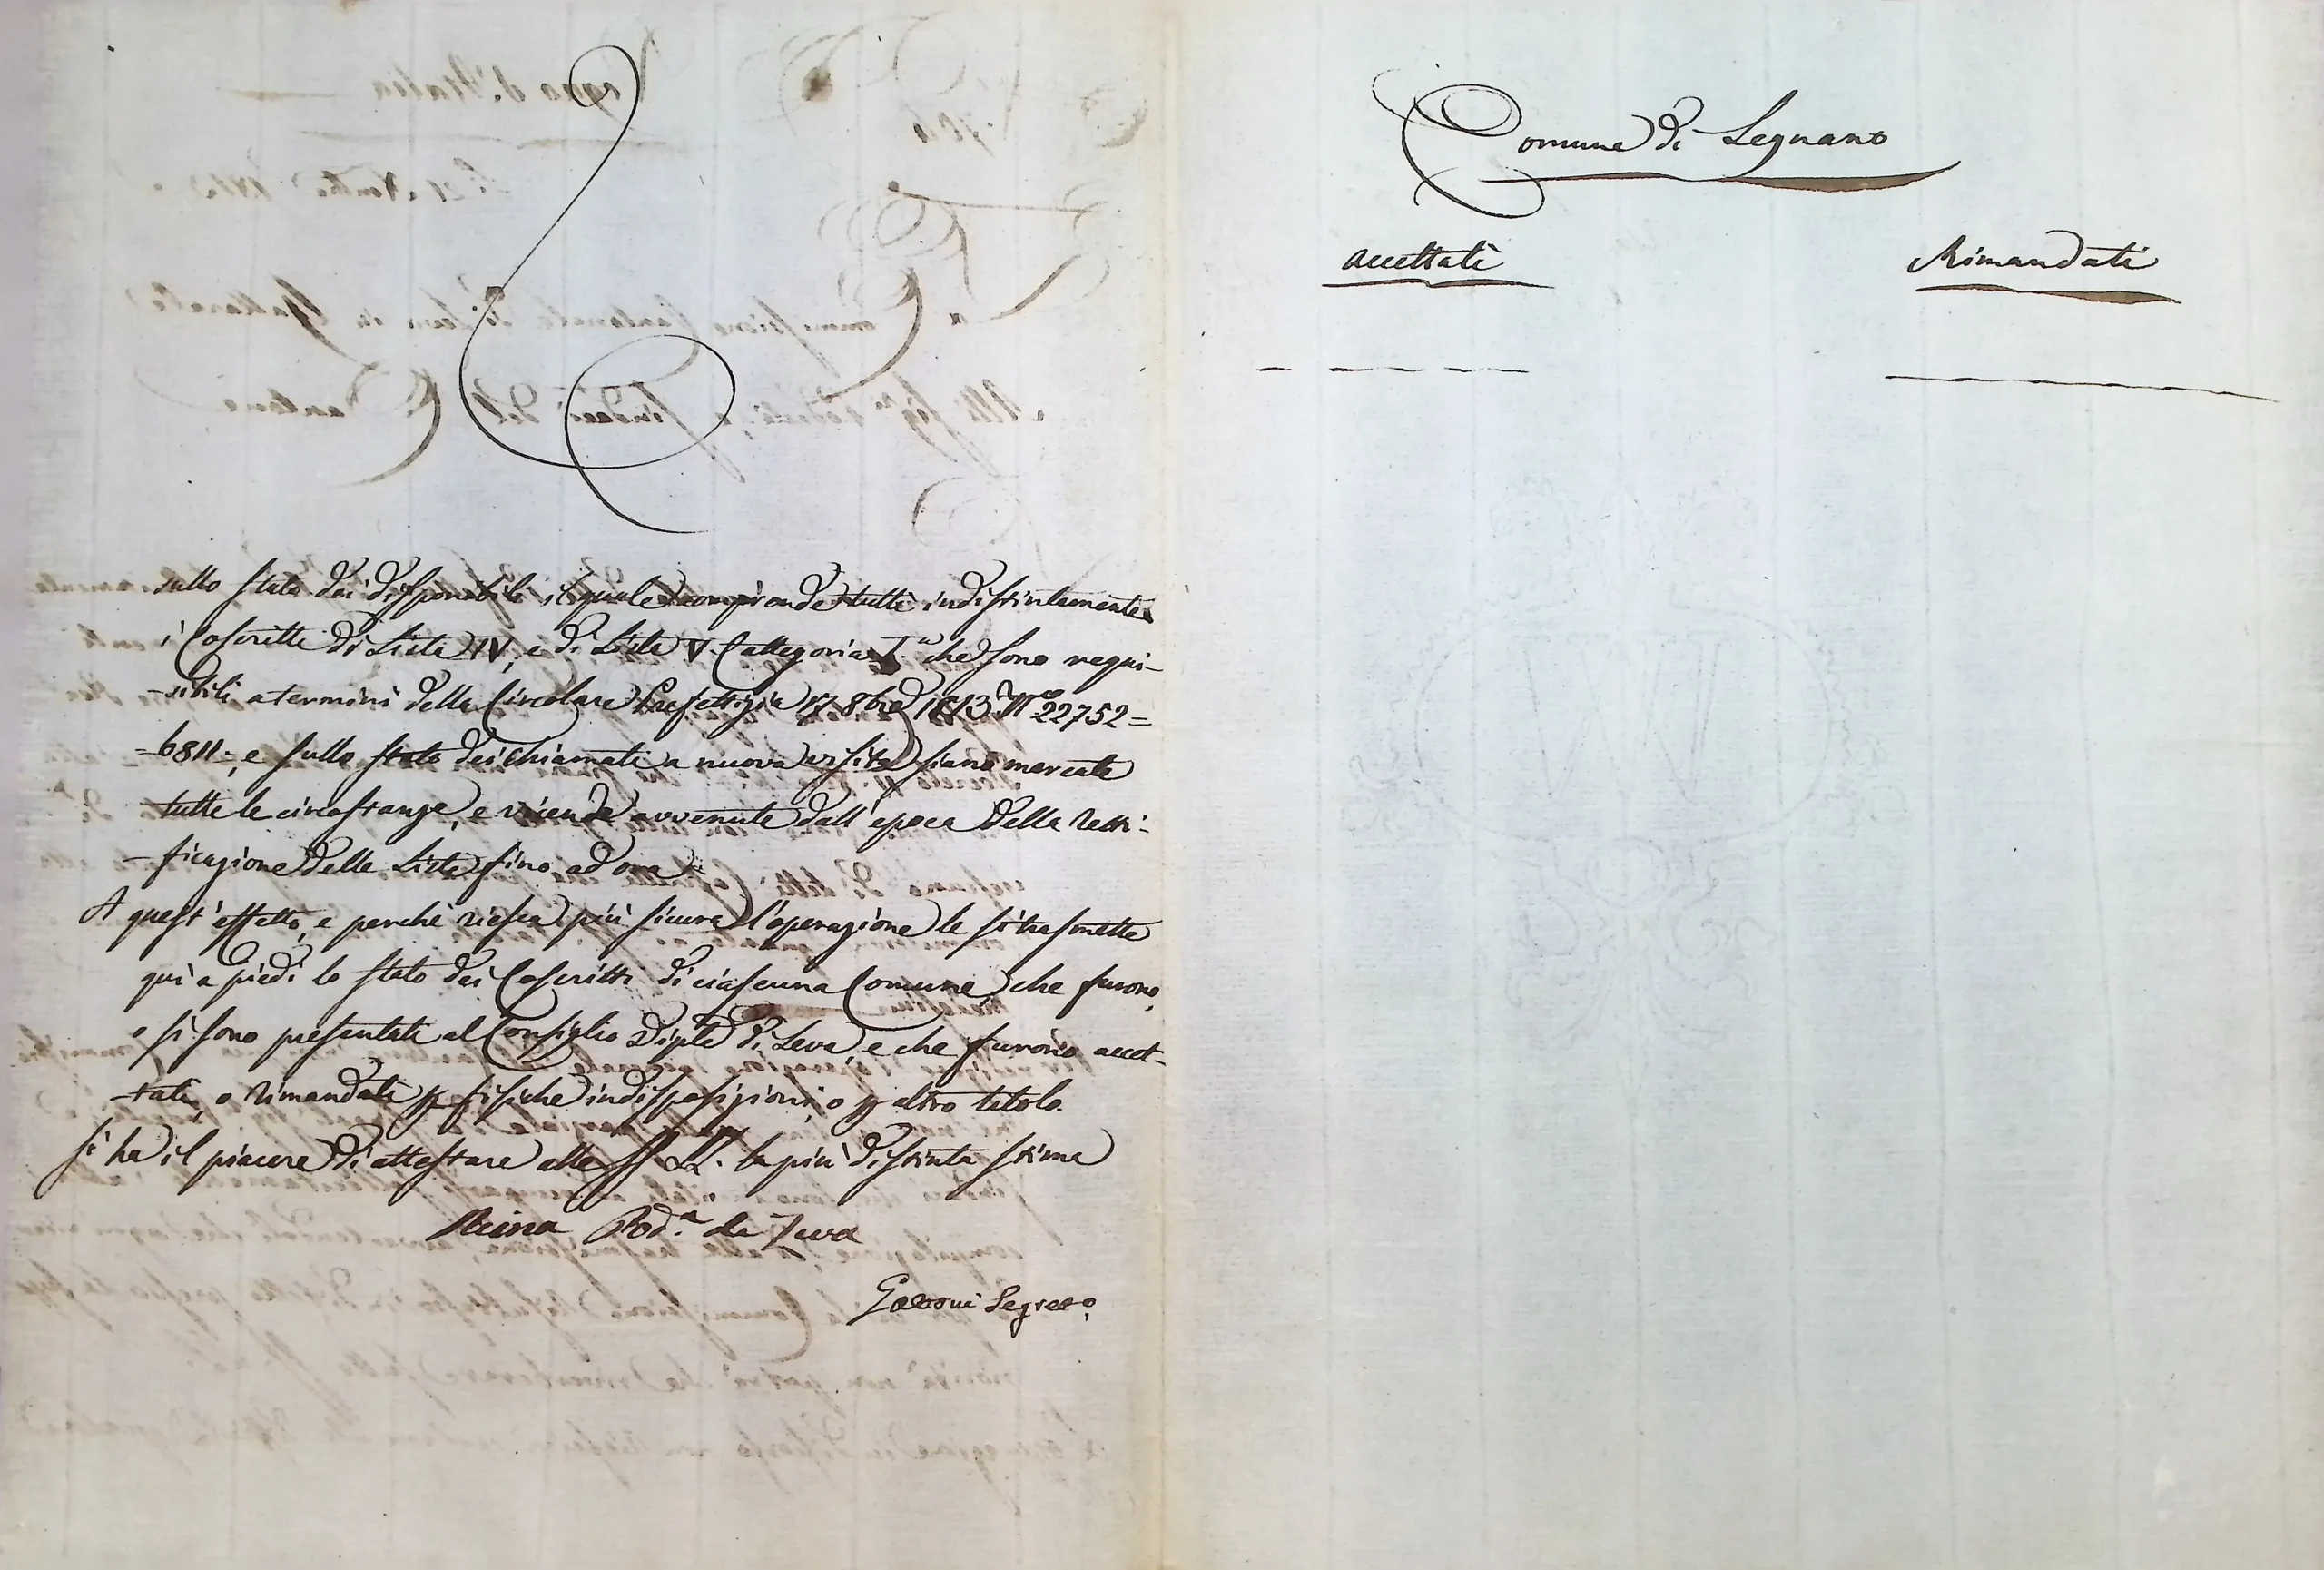 sullo stato dei disponibili, il quale comprende tutti indistintamente
i Coscritti di Lista IV, e di Lista V. Cattegoria I.a che sono requi-
-sibili a termini della Circolare Prefettizia 17 8bre 1813 N.o 22752=
=6811=, e sullo stato dei chiamati a nuova visita siano marcate
tutte le circostanze, e vicende avvenute dall'epoca della retti-
-ficazione delle Liste fino ad ora.
A quest'effetto, e perchè riesca più sicura l'operazione le si trasmette
qui a piedi lo stato dei Coscritti di ciascuna Comune, che furono,
o si sono presentati al Consiglio Diple di Leva, e che furono accet-
-tati, o rimandati p fisiche indisposizioni, o p altro titolo.
Si ha il piacere di attestare alle SS. LL. la più distinta stima
Reina Pod.a
Segret.o
Comune di Legnano
Accettati
Rimandati